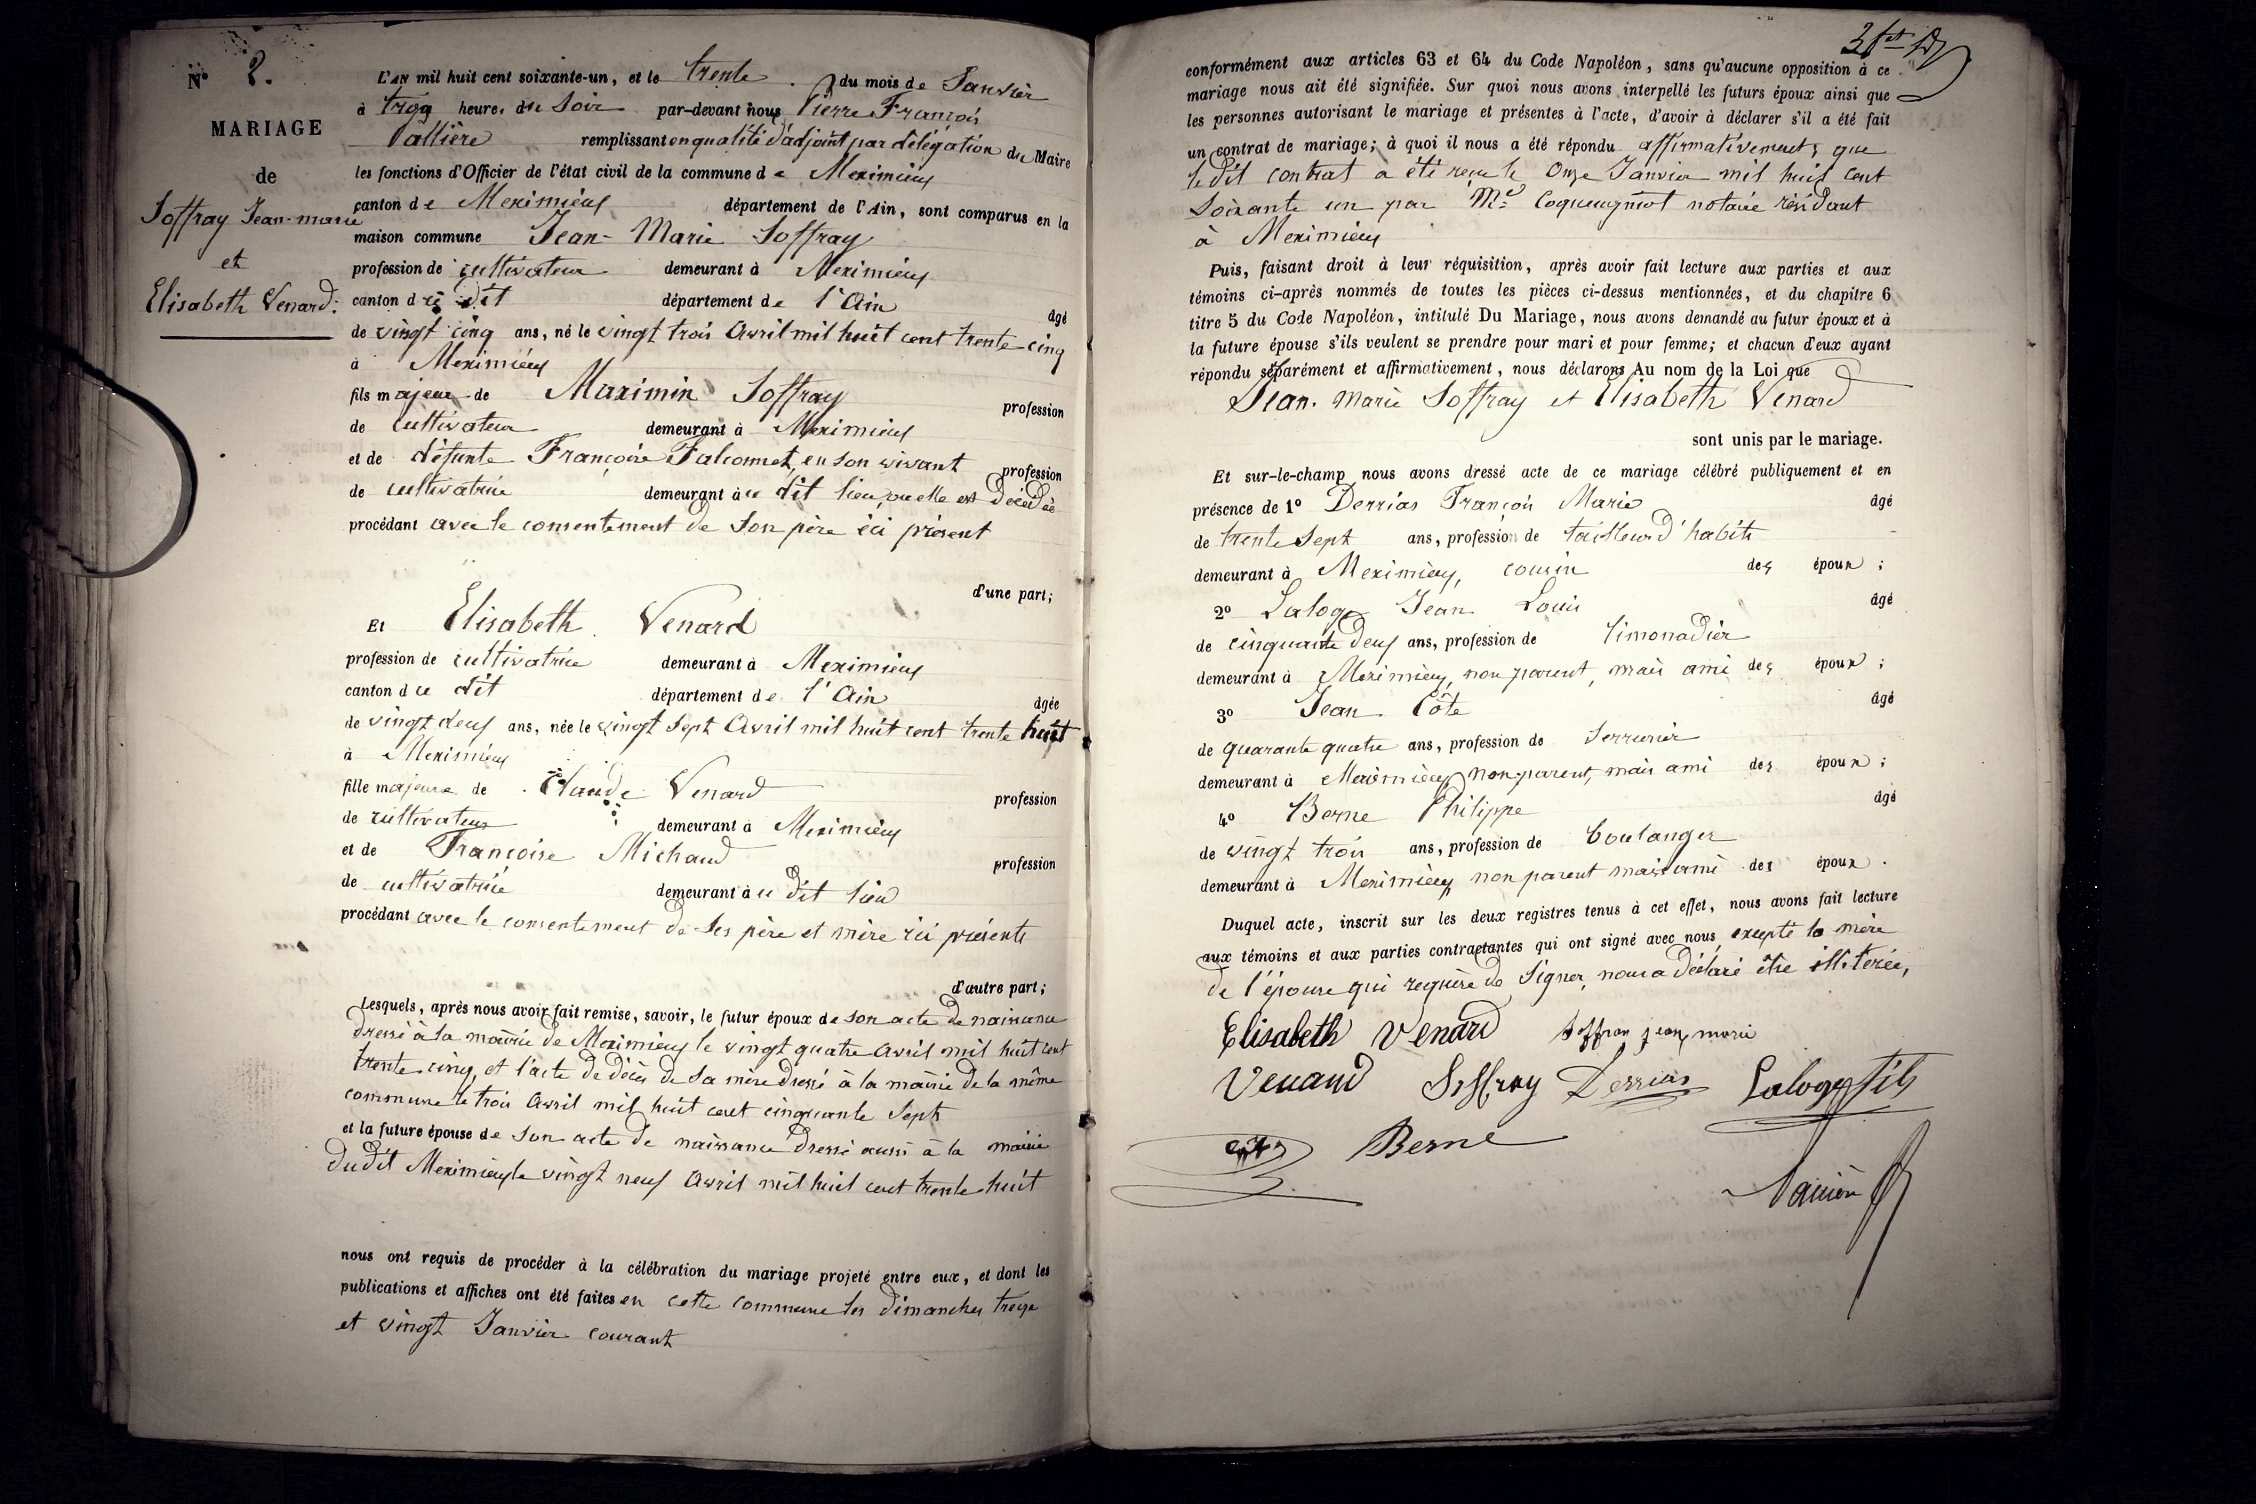 N° 2.
MARIAGE
de
Soffray Jean-marie
et
Elisabeth Venard.
L'AN mil huit cent soixante-un, et le trente du mois de Janvier
à trois heures du Soir par-devant nous Pierre François
Vallière remplissant en qualité d'adjoint par délégation du Maire
les fonctions d'Officier de l'état civil de la commune de Meximieux
canton de Meximieux département de l'Ain, sont comparus en la
maison commune Jean-Marie Soffray
profession de cultivateur demeurant à Meximieux
canton du dit département de l'Ain
âgé
de vingt cinq ans, né le vingt trois Avril mil huit cent trente cinq
à Meximieux
fils majeur de Maximin Soffray profession
de cultivateur demeurant à Meximieux
et de défunte Françoise Falconnet, en son vivant profession
de cultivatrice demeurant à ce dit lieu ou elle est décédée
procédant avec le consentement de Son père ici présent
d'une part;
Et Elisabeth Venard
profession de cultivatrice demeurant à Meximieux
canton du dit département de l'Ain
âgée
de vingt deux ans, née le vingt Sept Avril mil huit cent trente huit
à Meximieux
fille majeure de Claude Venard profession
de cultivateur demeurant à Meximieux
et de Françoise Michaud profession
de cultivatrice demeurant à ce dit lieu
procédant avec le consentement de Ses père et mère ici présents
d'autre part;
Lesquels, après nous avoir fait remise, savoir, le futur époux de son acte de naissance
dressé à la mairie de Meximieux le vingt quatre Avril mil huit cent
trente cinq, et l'acte de décès de Sa mère dressé à la mairie de la même
commune le trois Avril mil huit cent cinquante Sept
et la future épouse de Son acte de naissance dressé aussi à la mairie
du dit Meximieux le vingt neuf Avril mil huit cent trente huit
nous ont requis de procéder à la célébration du mariage projeté entre eux, et dont les
publications et affiches ont été faites en cette commune les dimanches treize
et vingt Janvier courant
conformément aux articles 63 et 64 du Code Napoléon, sans qu'aucune opposition à ce
mariage nous ait été signifiée. Sur quoi nous avons interpellé les futurs époux ainsi que
les personnes autorisant le mariage et présentes à l'acte, d'avoir à déclarer s'il a été fait
un contrat de mariage; à quoi il nous a été répondu affirmativement, que
le dit contrat a été reçu le Onze Janvier mil huit cent
Soixante un par Me Coqueugniot notaire résidant
à Meximieux
Puis, faisant droit à leur réquisition, après avoir fait lecture aux parties et aux
témoins ci-après nommés de toutes les pièces ci-dessus mentionnées, et du chapitre 6
titre 5 du Code Napoléon, intitulé Du Mariage, nous avons demandé au futur époux et à
la future épouse s'ils veulent se prendre pour mari et pour femme; et chacun d'eux ayant
répondu séparément et affirmativement, nous déclarons Au nom de la Loi que
Jean-Marie Soffray et Elisabeth Venard
sont unis par le mariage.
Et sur-le-champ nous avons dressé acte de ce mariage célébré publiquement et en
présence de 1° Derrias François Marie âgé
de trente Sept ans, profession de tailleur d'habits
demeurant à Meximieux, cousin des époux;
2° Laloge Jean Louis âgé
de cinquante deux ans, profession de limonadier
demeurant à Meximieux, non parent, mais ami des époux;
3° Jean Côte âgé
de quarante quatre ans, profession de Serrurier
demeurant à Meximieux non parent, mais ami des époux;
4° Berne Philippe âgé
de vingt trois ans, profession de boulanger
demeurant à Meximieux non parent mais ami des époux.
Duquel acte, inscrit sur les deux registres tenus à cet effet, nous avons fait lecture
aux témoins et aux parties contractantes qui ont signé avec nous excepté la mère
de l'épouse qui requise de Signer, nous a déclaré être illiterée,
Elisabeth Venard Soffray jean marie
Venard Soffray Derrias Laloge fils
Berne